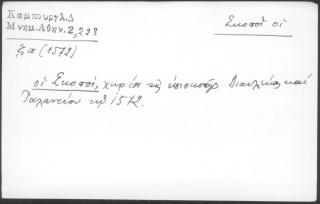 Καμπούρογλ.Δ
Μνημ.Αθην.2,228
Σκοποί οἱ
ξα (1572)
οἱ Σκοποί, χωρίον τῆς ἐπισκοπῆς Διαυλείας καί
Ταλαντίου τῷ 1572.